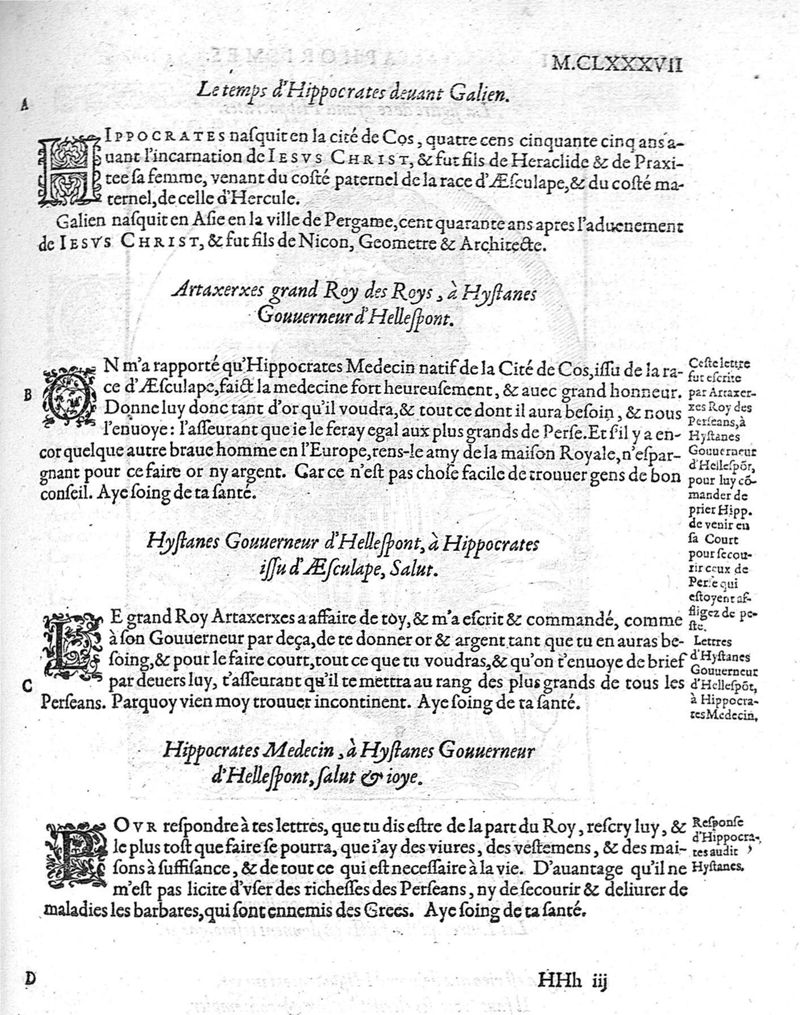 M.CLXXXVII
Le temps d'Hippocrates deuant Galien.
A
HIPPOCRATES naſquit en la cité de Cos, quatre cens cinquante cinq ans a-
uant l'incarnation de IESVS CHRIST, & fut fils de Heraclide & de Praxi-
tee ſa femme, venant du coſté paternel de la race d'Æſculape, & du coſté ma-
ternel, de celle d'Hercule.
Galien naſquit en Aſie en la ville de Pergame, cent quarante ans apres l'aduenement
de IESVS CHRIST, & fut fils de Nicon, Geometre & Architecte.
Artaxerxes grand Roy des Roys, à Hyſtanes
Gouuerneur d'Helleſpont.
B
ON m'a rapporté qu'Hippocrates Medecin natif de la Cité de Cos, iſſu de la ra-
ce d'Æſculape, faict la medecine fort heureuſement, & auec grand honneur.
Donne luy donc tant d'or qu'il voudra, & tout ce dont il aura beſoin, & nous
l'enuoye: l'aſſeurant que ie le feray egal aux plus grands de Perſe. Et s'il y a en-
cor quelque autre braue homme en l'Europe, rens-le amy de la maiſon Royale, n'eſpar-
gnant pour ce faire or ny argent. Car ce n'eſt pas choſe facile de trouuer gens de bon
conſeil. Aye ſoing de ta ſanté.
Ceſte lettre
fut eſcrite
par Artaxer-
xes Roy des
Perſeans, à
Hyſtanes
Gouuerneur
d'Helleſpōt,
pour luy cō-
mander de
prier Hipp.
de venir en
ſa Court
pour ſecou-
rir ceux de
Perſe qui
eſtoyent af-
fligez de pe-
ſte.
Hyſtanes Gouuerneur d'Helleſpont, à Hippocrates
iſſu d'Æſculape, Salut.
LE grand Roy Artaxerxes a affaire de toy, & m'a eſcrit & commandé, comme
à ſon Gouuerneur par deça, de te donner or & argent tant que tu en auras be-
ſoing, & pour le faire court, tout ce que tu voudras, & qu'on t'enuoye de brief
par deuers luy, t'aſſeurant qu'il te mettra au rang des plus grands de tous les
C
Perſeans. Parquoy vien moy trouuer incontinent. Aye ſoing de ta ſanté.
Lettres
d'Hyſtanes
Gouuerneur
d'Helleſpōt,
à Hippocra-
tes Medecin,
Hippocrates Medecin, à Hyſtanes Gouuerneur
d'Helleſpont, ſalut & ioye.
POVR reſpondre à tes lettres, que tu dis eſtre de la part du Roy, reſcry luy, &
le plus toſt que faire ſe pourra, que i'ay des viures, des veſtemens, & des mai-
ſons à ſuffiſance, & de tout ce qui eſt neceſſaire à la vie. D'auantage qu'il ne
m'eſt pas licite d'vſer des richeſſes des Perſeans, ny de ſecourir & deliurer de
maladies les barbares, qui ſont ennemis des Grecs. Aye ſoing de ta ſanté.
Reſponſe
d'Hippocra-
tes audit
Hyſtanes.
D
HHh iij